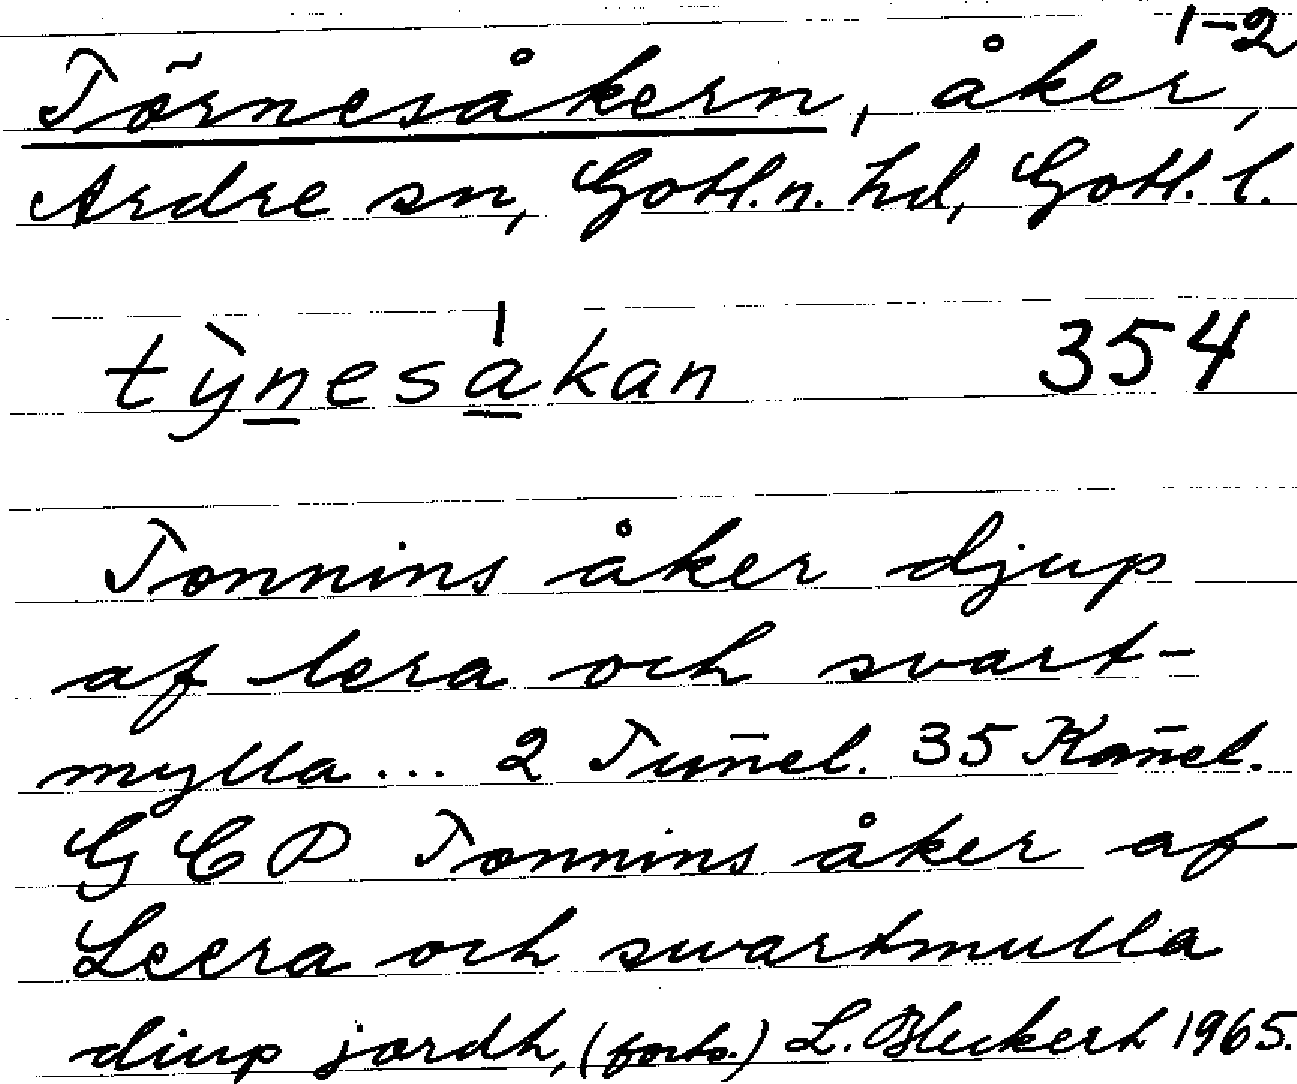 1-2
Törnesåkern, åker,
Ardre sn, Gotl.n. hd, Gotl. l.
tỳnesåkan 354
Tonnins åker djup
af lera och svart-
mylla... 2 Tun̄el. 35 Kan̄el.
GCP Tonnins åker af
Leera och swartmulla
diup jordh, (forts.) L. Bleckert 1965.